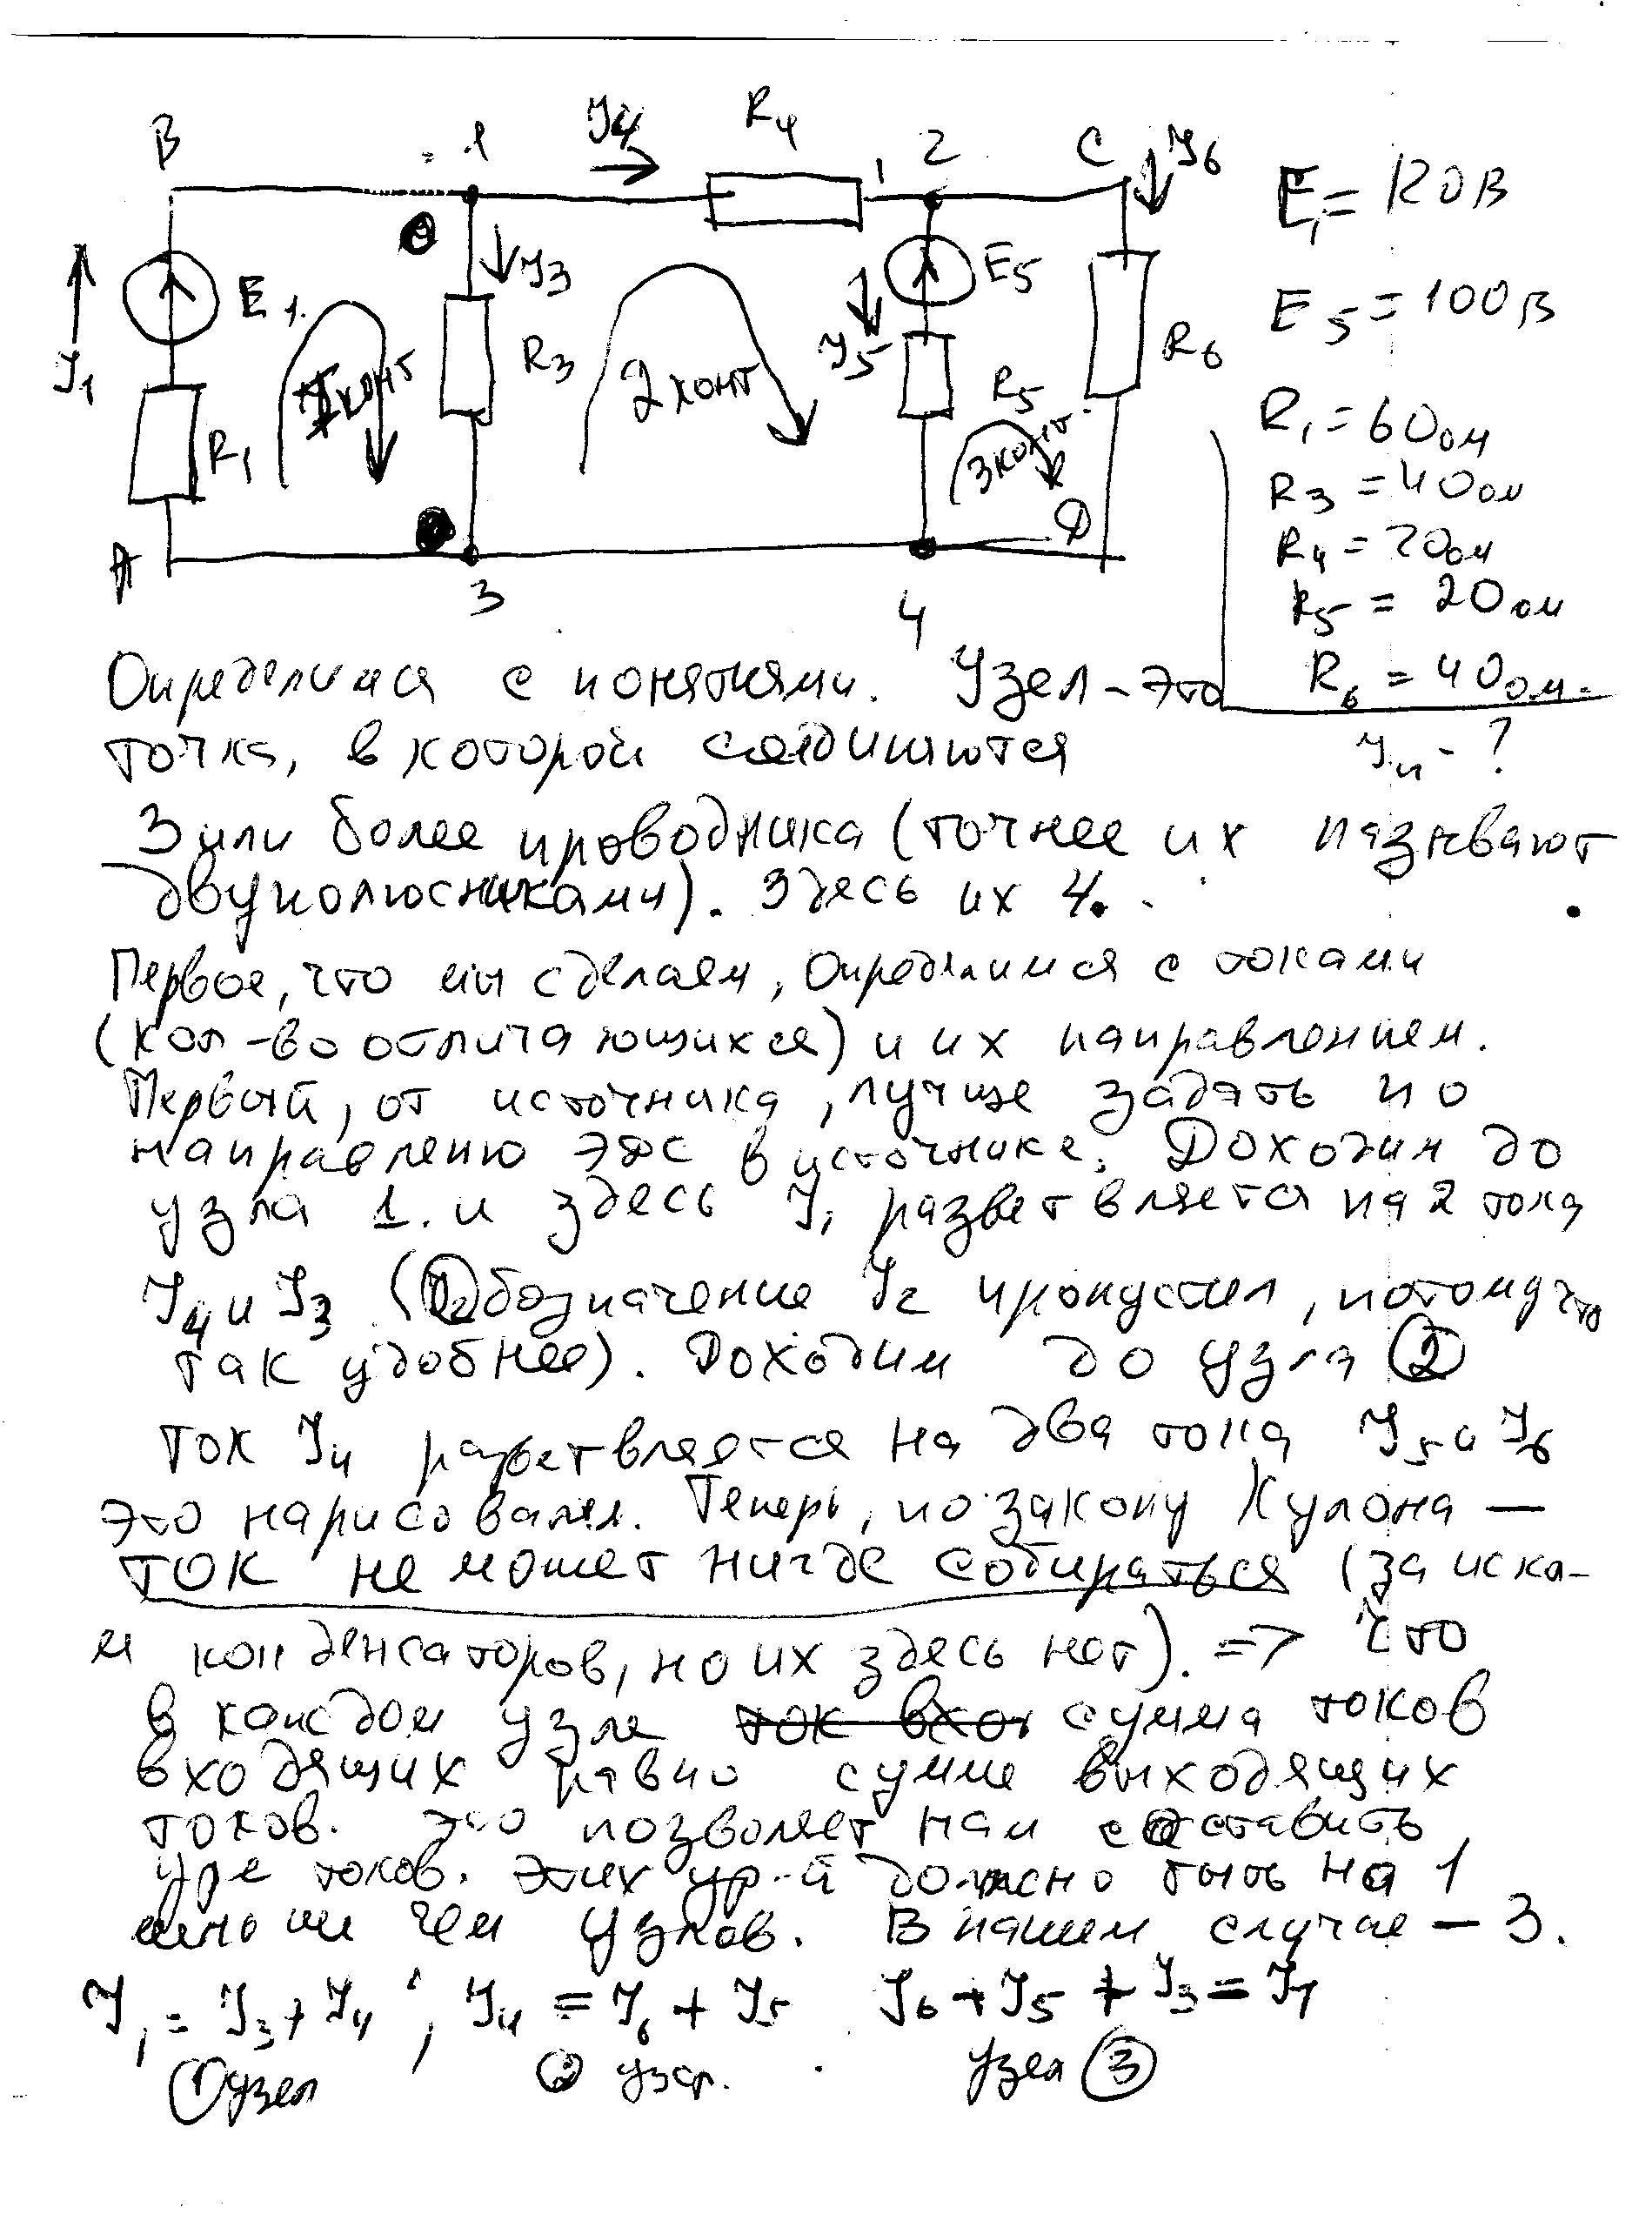 B 1 J4 R4 2 C J6
E1 = 120В
E1 J3 E5
E5 = 100В
J1 R3 J5 R6
1 конт 2 конт R5
R1 3 конт
R1 = 60 ом
R3 = 40 ом
A D
R4 = 20 ом
3 4
R5 = 20 ом
R6 = 40 ом.
J4 - ?
Определимся с понятиями. Узел - это
точка, в которой соединяются
3 или более проводника (точнее их называют
двуполюсниками). Здесь их 4.
Первое, что мы сделаем, определимся с токами
(кол-во отличающихся) и их направлением.
Первый, от источника, лучше задать по
направлению ЭДС в источнике. Доходим до
узла 1. и здесь J1 разветвляется на 2 тока
J4 и J3 (Обозначение J2 пропустил, потому что
так удобнее). Доходим до узла 2
ток J4 разветвляется на два тока J5 и J6
это нарисовали. Теперь, по закону Кулона —
ток не может нигде собираться (за иска-
м конденсаторов, но их здесь нет). => что
в каждом узле ток вхо сумма токов
входящих равно сумме выходящих
токов. Это позволяет нам составить
ур-е токов. Этих ур-й должно быть на 1
меньше чем узлов. В нашем случае — 3.
J1 = J3 + J4 ; J4 = J6 + J5 J6 + J5 + J3 = J1
1 узел 2 узел. узел 3